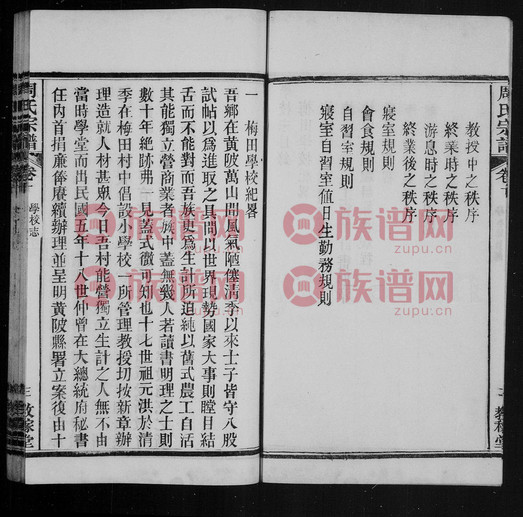 教授中之秩序
終業時之秩序
游息時之秩序
終業後之秩序
寢室規則
會食規則
自習室規則
寢室自習室值日生勤務規則
周氏宗譜
卷首
一 梅田學校紀畧
吾鄉在黃陂萬山間風氣陋僿清季以來士子皆守八股
試帖以為進取之具問以世界現勢國家大事則瞠目結
舌而不能對而吾族更為生計所迫純以舊式農工自活
其能獨立營商業者族中蓋無幾人若讀書明理之士則
數十年絕跡弗一見蓋式微可知也十七世祖元洪於清
季在梅田村中倡設小學校一所管理教授切按新章辦
理造就人材甚夥今日吾村能營獨立生計之人無不由
當時學堂而出民國五年十八世仲曾在大總統府秘書
任內首捐廉俸賡續辦理並呈明黃陂縣署立案後由十
周氏宗譜
學校志
三
敦稼堂
族谱网
zupu.cn
族谱网
zupu.cn
族谱网
zupu.cn
族谱网
zupu.cn